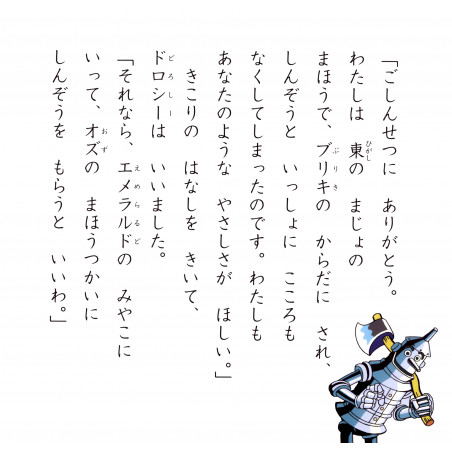 「ごしんせつに ありがとう。
わたしは 東の まじょの
まほうで、ブリキの からだに され、
しんぞうと いっしょに こころも
なくしてしまったのです。わたしも
あなたのような やさしさが ほしい。」
きこりの はなしを きいて、
ドロシーは いいました。
「それなら、エメラルドの みやこに
いって、オズの まほうつかいに
しんぞうを もらうと いいわ。」